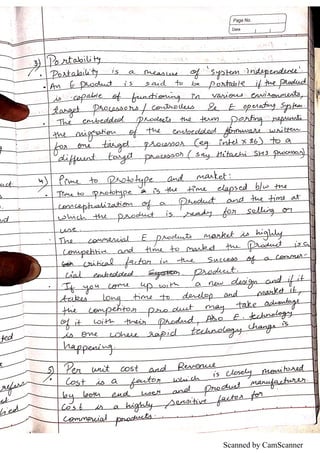 Page No.
Date
3) Portability
Portability is a measure of 'system Independence'
An E product is said to be Portable if the Product
is capable of functioning in various environments,
target processors / controllers & E operating System
The embedded products the term porting represents
the migration of the embedded firmware written
for one target processor (eg intel x86) to a
different target processor (say Hitachi SH3 processor)
4) Time to Prototype and market:
Time to prototype is the time elapsed b/w the
conceptualization of a Product and the time at
which the product is ready for selling or
use
The commercial E products market is highly
competitive and time to market the product is a
critical factor in the Success of a commer-
cial embedded product.
If you come up with a new design and if it
takes long time to develop and market it,
the competitor product may take advantage
of it with their product, Also E. technology
is one where rapid technology change is
happening
5) Per unit cost and Revenue
Cost is a factor which is closely monitored
by both end user and product manufacturer
Cost is a highly sensitive factor for
commercial products.
Scanned by CamScanner